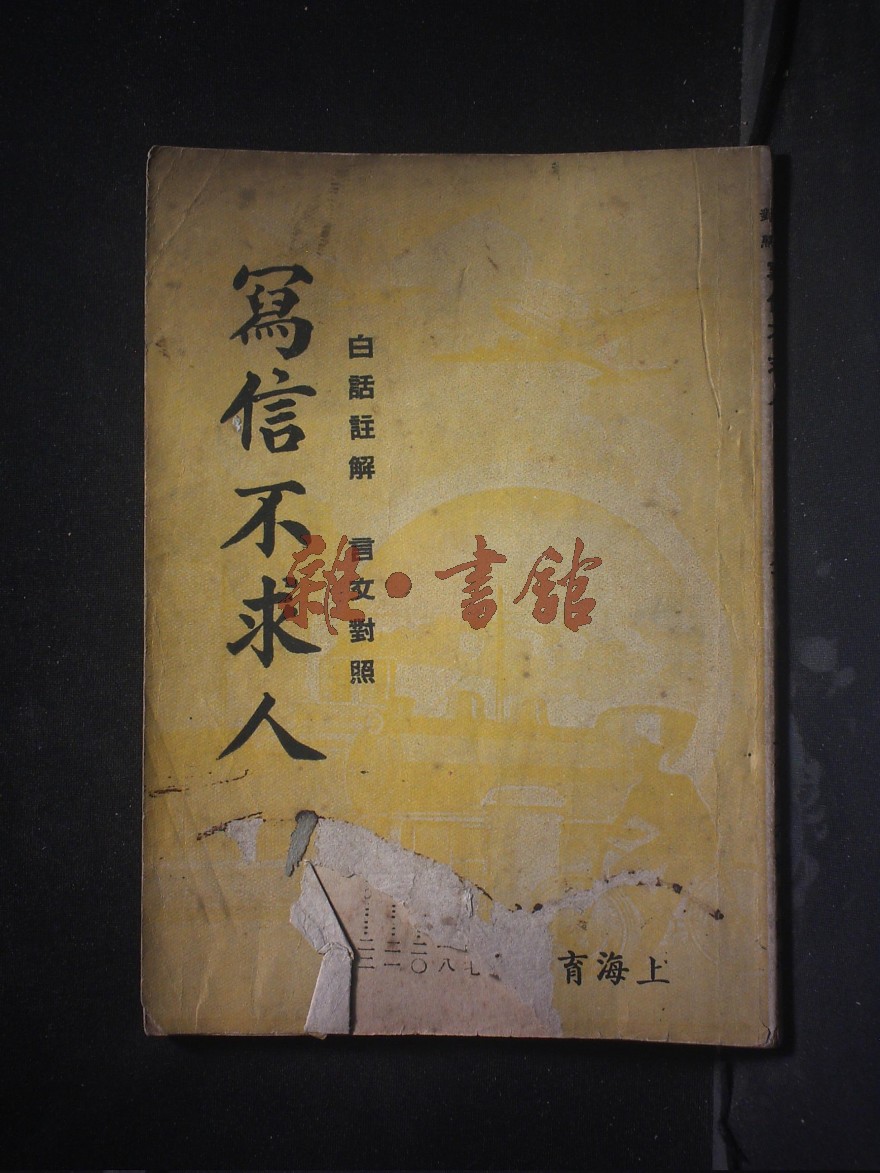 寫信不求人
白話註解 言文對照
雜·書館
上海育
七
八
二〇
二一
二二